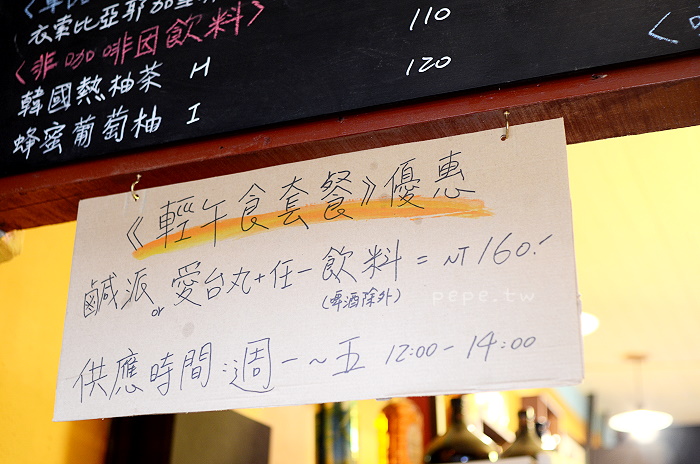 衣索比亞耶加雪
110
《非咖啡因飲料》
韓國熱柚茶 H 120
蜂蜜葡萄柚 I
《輕午食套餐》優惠
鹹派 or 愛台丸+任一飲料 = NT 160.-
(啤酒除外)
供應時間:週一~五 12:00-14:00
pepe.tw